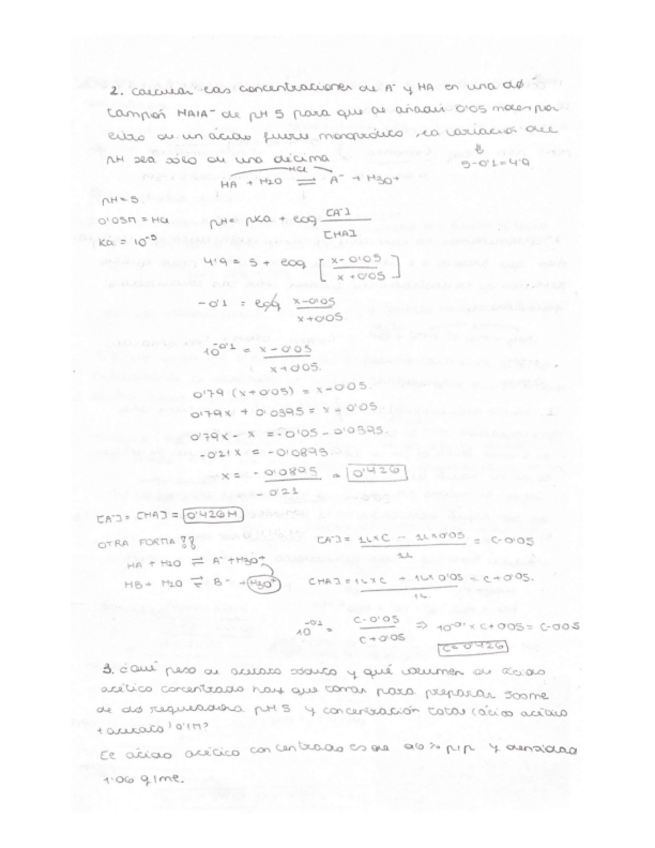 2. Calcular las concentraciones de A⁻ y HA en una dó
tampón HA/A⁻ de pH 5 para que al añadir 0'05 moles por
litro de un ácido fuerte monoprótico, la variación del
pH sea sólo de una décima
5-0'1=4'9
HCl
HA + H2O ⇌ A⁻ + H3O⁺
pH=5
0'05M = HCl
Ka = 10⁻⁵
pH= pKa + log [A⁻] / [HA]
4'9 = 5 + log [ x-0'05 / x+0'05 ]
-0'1 = log x-0'05 / x+0'05
10^-0'1 = x-0'05 / x+0'05.
0'79 (x+0'05) = x-0'05.
0'79x + 0'0395 = x-0'05.
0'79x - x = -0'05 - 0'0395.
-0'21x = -0'0895
x = -0'0895 / -0'21 = 0'426
[A⁻] = [HA] = 0'426M
OTRA FORMA
HA + H2O ⇌ A⁻ + H3O⁺
HB + H2O ⇌ B⁻ + H3O⁺
[A⁻] = 1L×C - 1L×0'05 / 1L = C-0'05
[HA] = 1L×C + 1L×0'05 / 1L = C+0'05.
10^-0'1 = C-0'05 / C+0'05 ⇒ 10^-0'1 × C+0'05 = C-0'05
C=0'426
3. ¿Qué peso de acetato sódico y qué volumen de ácido
acético concentrado hay que tomar para preparar 500ml
de dó reguladora pH 5 y concentración total (ácido acético
+ acetato) 0'1M?
El ácido acético concentrado es del 96% p/p y densidad
1'06 g/ml.